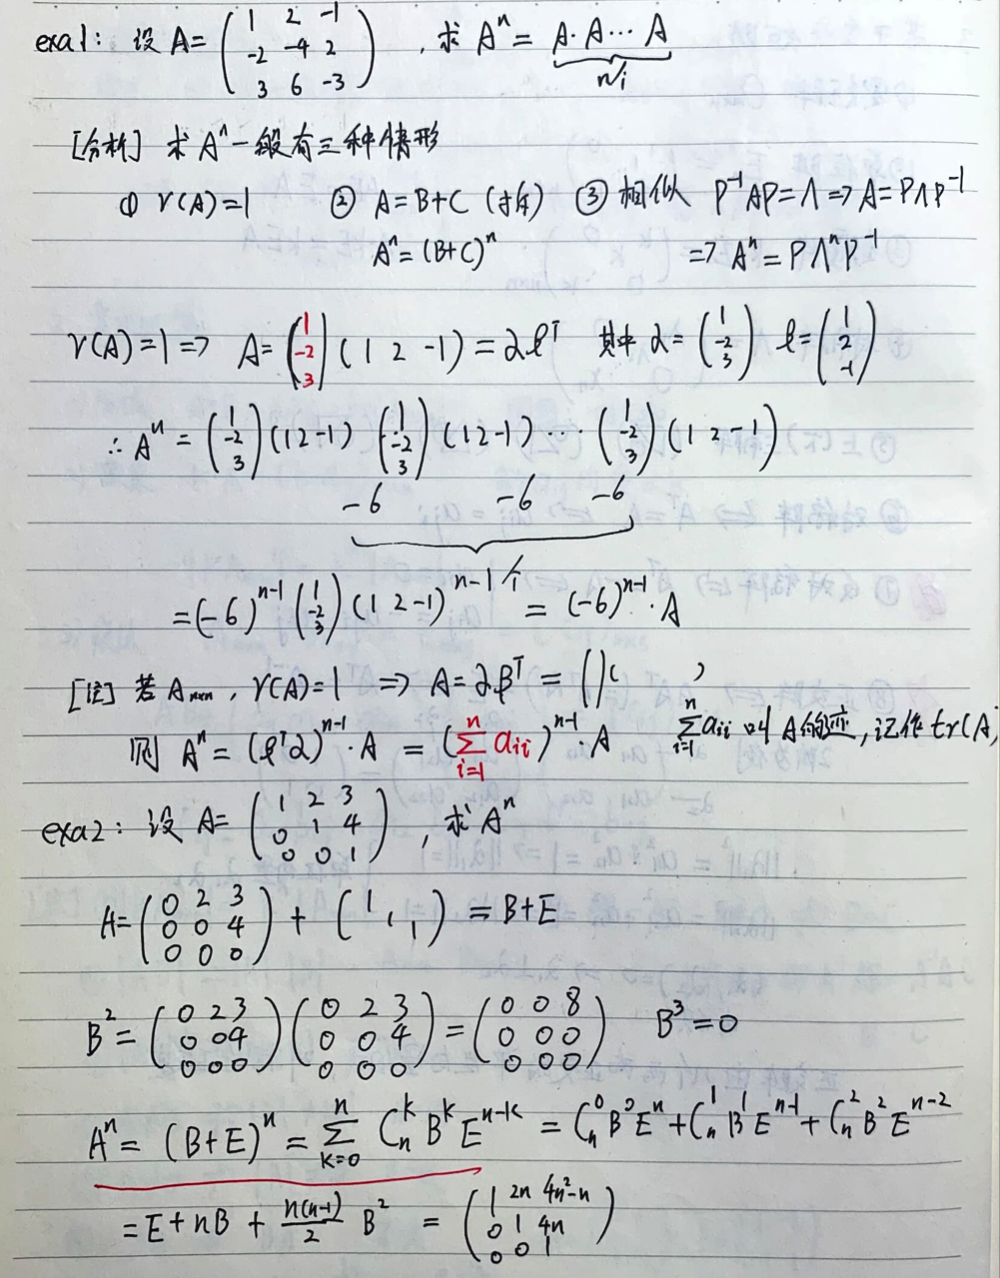 exa1: 设 A = ( 1 2 -1 ; -2 -4 2 ; 3 6 -3 ) , 求 Aⁿ = A·A⋯A (n个)
[分析] 求 Aⁿ 一般有三种情形
① r(A)=1 ② A=B+C (拆) ③ 相似 P⁻¹AP=Λ ⇒ A=PΛP⁻¹
Aⁿ=(B+C)ⁿ ⇒ Aⁿ=PΛⁿP⁻¹
r(A)=1 ⇒ A= ( 1 ; -2 ; 3 ) ( 1 2 -1 ) = αβᵀ 其中 α= ( 1 ; -2 ; 3 ) β= ( 1 ; 2 ; -1 )
∴ Aⁿ = ( 1 ; -2 ; 3 ) (1 2 -1) ( 1 ; -2 ; 3 ) (1 2 -1) ⋯ ( 1 ; -2 ; 3 ) (1 2 -1)
-6 -6 -6
n-1个
= (-6)ⁿ⁻¹ ( 1 ; -2 ; 3 ) (1 2 -1) = (-6)ⁿ⁻¹·A
[注] 若 Aₙₓₙ , r(A)=1 ⇒ A=αβᵀ = ( )( )
则 Aⁿ = (βᵀα)ⁿ⁻¹·A = (∑_{i=1}^{n} aᵢᵢ)ⁿ⁻¹·A ∑_{i=1}^{n} aᵢᵢ 叫 A的迹, 记作 tr(A)
exa2: 设 A= ( 1 2 3 ; 0 1 4 ; 0 0 1 ) , 求 Aⁿ
A= ( 0 2 3 ; 0 0 4 ; 0 0 0 ) + ( 1 1 1 ) = B+E
B² = ( 0 2 3 ; 0 0 4 ; 0 0 0 ) ( 0 2 3 ; 0 0 4 ; 0 0 0 ) = ( 0 0 8 ; 0 0 0 ; 0 0 0 ) B³=0
Aⁿ = (B+E)ⁿ = ∑_{k=0}^{n} Cₙᵏ Bᵏ Eⁿ⁻ᵏ = Cₙ⁰ B⁰ Eⁿ + Cₙ¹ B¹ Eⁿ⁻¹ + Cₙ² B² Eⁿ⁻²
= E + nB + n(n-1)/2 B² = ( 1 2n 4n²-n ; 0 1 4n ; 0 0 1 )